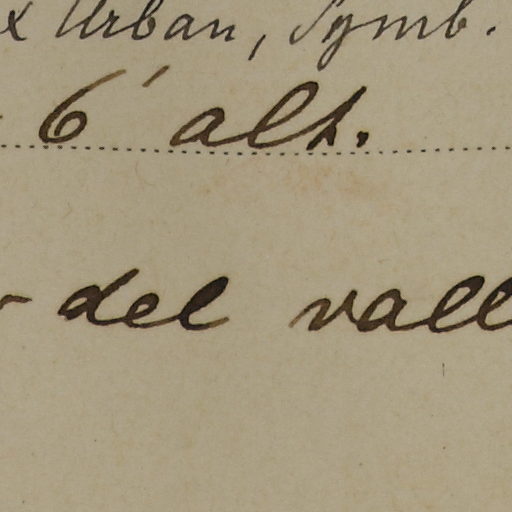 & Urban, Symb.
6' alt.
del vall